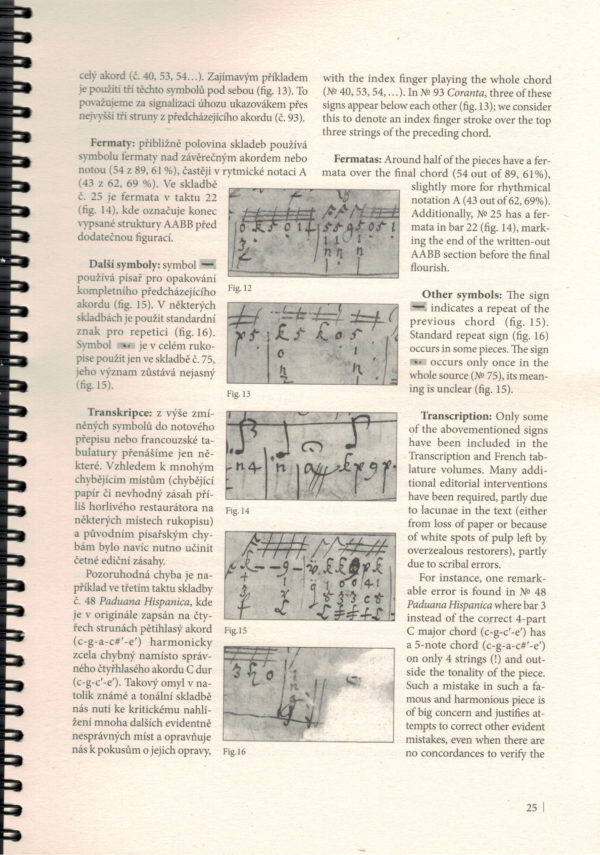 celý akord (č. 40, 53, 54…). Zajímavým příkladem
je použití tří těchto symbolů pod sebou (fig. 13). To
považujeme za signalizaci úhozu ukazovákem přes
nejvyšší tři struny z předcházejícího akordu (č. 93).
Fermaty: přibližně polovina skladeb používá
symbolu fermaty nad závěrečným akordem nebo
notou (54 z 89, 61 %), častěji v rytmické notaci A
(43 z 62, 69 %). Ve skladbě
č. 25 je fermata v taktu 22
(fig. 14), kde označuje konec
vypsané struktury AABB před
dodatečnou figurací.
Další symboly: symbol
používá písař pro opakování
kompletního předcházejícího
akordu (fig. 15). V některých
skladbách je použit standardní
znak pro repetici (fig. 16).
Symbol je v celém ruko-
pise použit jen ve skladbě č. 75,
jeho význam zůstává nejasný
(fig. 15).
Transkripce: z výše zmí-
něných symbolů do notového
přepisu nebo francouzské ta-
bulatury přenášíme jen ně-
které. Vzhledem k mnohým
chybějícím místům (chybějící
papír či nevhodný zásah pří-
liš horlivého restaurátora na
některých místech rukopisu)
a původním písařským chy-
bám bylo navíc nutno učinit
četné ediční zásahy.
Pozoruhodná chyba je na-
příklad ve třetím taktu skladby
č. 48 Paduana Hispanica, kde
je v originále zapsán na čty-
řech strunách pětihlasý akord
(c-g-a-c#'-e') harmonicky
zcela chybný namísto správ-
ného čtyřhlasého akordu C dur
(c-g-c'-e'). Takový omyl v na-
tolik známé a tonální skladbě
nás nutí ke kritickému nahlí-
žení mnoha dalších evidentně
nesprávných míst a opravňuje
nás k pokusům o jejich opravy,
Fig. 12
Fig. 13
Fig. 14
Fig.15
Fig.16
with the index finger playing the whole chord
(№ 40, 53, 54,…). In № 93 Coranta, three of these
signs appear below each other (fig. 13); we consider
this to denote an index finger stroke over the top
three strings of the preceding chord.
Fermatas: Around half of the pieces have a fer-
mata over the final chord (54 out of 89, 61%),
slightly more for rhythmical
notation A (43 out of 62, 69%).
Additionally, № 25 has a fer-
mata in bar 22 (fig. 14), mark-
ing the end of the written-out
AABB section before the final
flourish.
Other symbols: The sign
indicates a repeat of the
previous chord (fig. 15).
Standard repeat sign (fig. 16)
occurs in some pieces. The sign
occurs only once in the
whole source (№ 75), its mean-
ing is unclear (fig. 15).
Transcription: Only some
of the abovementioned signs
have been included in the
Transcription and French tab-
lature volumes. Many addi-
tional editorial interventions
have been required, partly due
to lacunae in the text (either
from loss of paper or because
of white spots of pulp left by
overzealous restorers), partly
due to scribal errors.
For instance, one remark-
able error is found in № 48
Paduana Hispanica where bar 3
instead of the correct 4-part
C major chord (c-g-c'-e') has
a 5-note chord (c-g-a-c#'-e')
on only 4 strings (!) and out-
side the tonality of the piece.
Such a mistake in such a fa-
mous and harmonious piece is
of big concern and justifies at-
tempts to correct other evident
mistakes, even when there are
no concordances to verify the
25 |